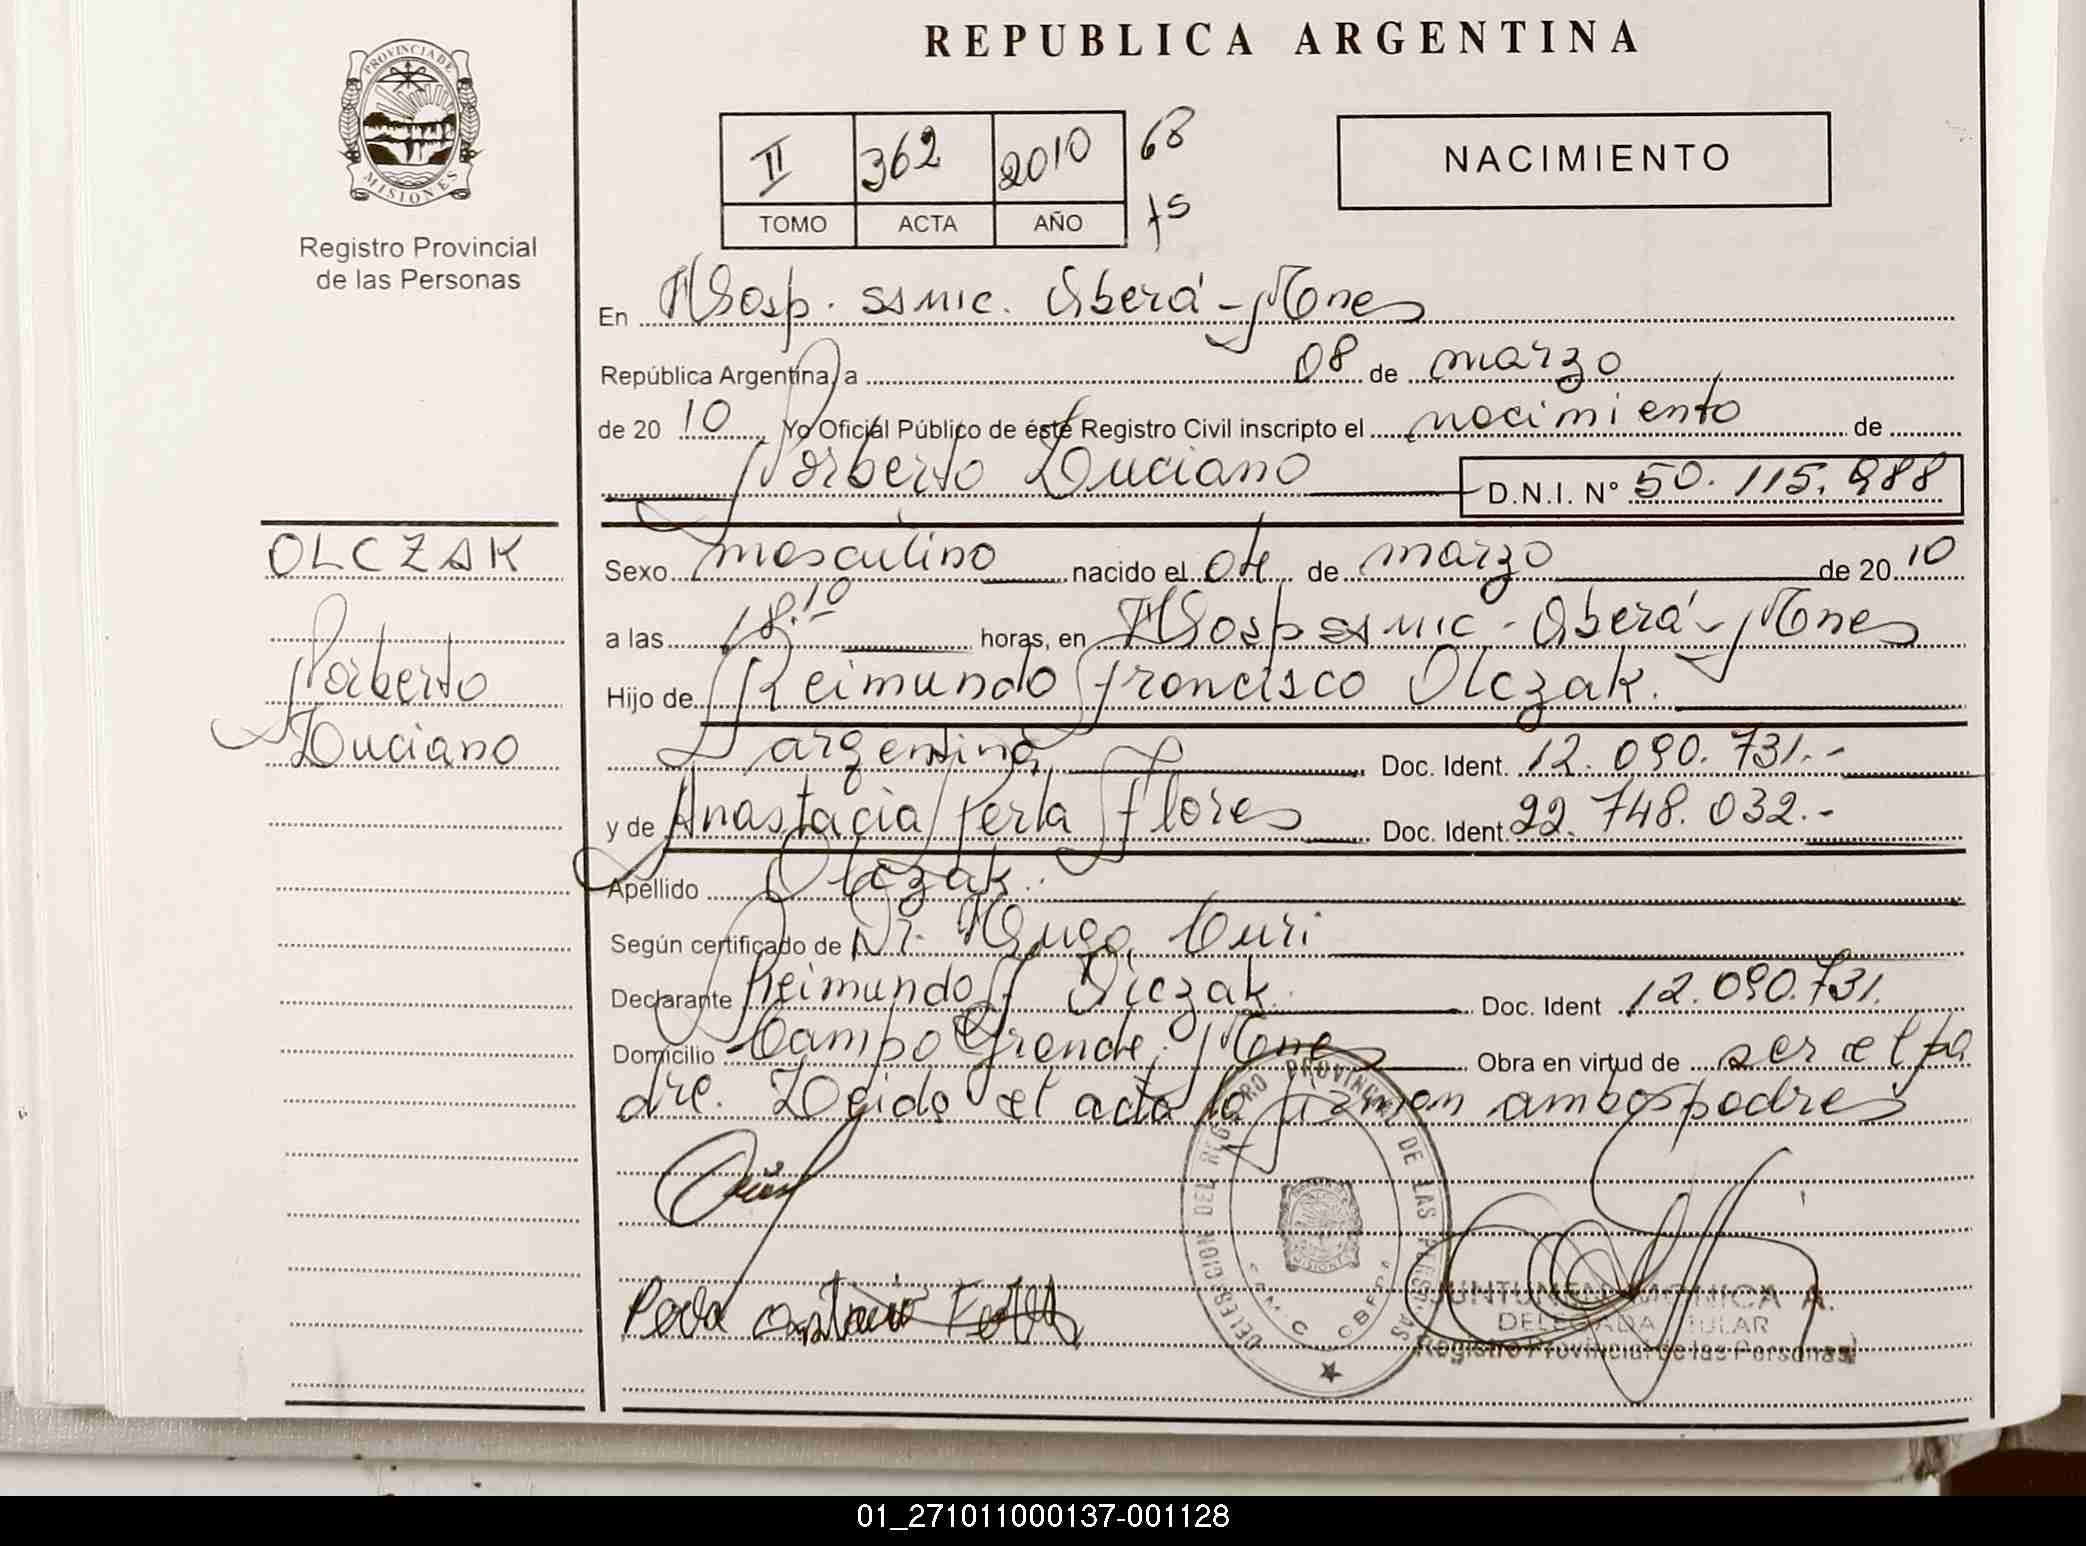 REPUBLICA ARGENTINA
PROVINCIA DE
MISIONES
Registro Provincial
de las Personas
II 362 2010 68
TOMO ACTA AÑO 75
NACIMIENTO
En Hosp. SSMIC. Oberá - Mnes
República Argentina, a 08 de marzo
de 20 10 Yo Oficial Público de éste Registro Civil inscripto el nacimiento de
Norberto Luciano D.N.I. N° 50.115.988
OLCZAK
Norberto
Luciano
Sexo masculino nacido el 04 de marzo de 20 10
a las 18.10 horas, en Hosp SSMIC - Oberá - Mnes
Hijo de Reimundo Francisco Olczak.
argentina Doc. Ident. 12.090.731.-
y de Anastacia Perla Flores Doc. Ident. 22.748.032.-
Apellido Olczak.
Según certificado de Dr. Hugo Curi
Declarante Reimundo F Olczak. Doc. Ident 12.090.731.
Domicilio Campo Grande, Mnes Obra en virtud de ser el pa
dre. Leida el acta la firman ambos padres
DELEGACION DEL REGISTRO PROVINCIAL DE LAS PERSONAS
MISIONES
JUNTUNEN MONICA A.
DELEGADA TITULAR
Registro Provincial de las Personas
01_271011000137-001128